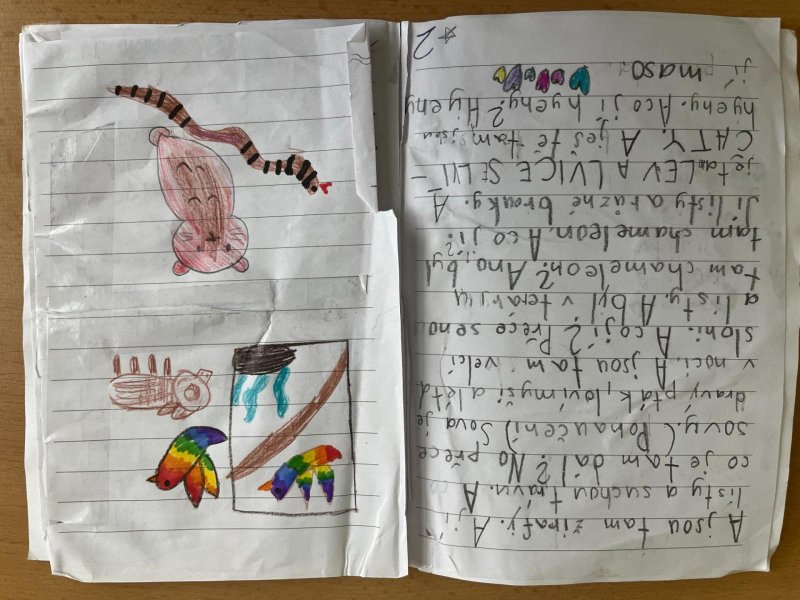 A jsou tam žirafy. A jí
listy a suchou trávu. A
co je tam dál? No přece
sovy. (Ponaučení) Sova je
dravý pták, loví myši a létá
v noci. A jsou tam velcí
sloni. A co jí? Přece seno
a listy. A byl v teráriu
tam chameleon? Ano, byl
tam chameleon. A co jí?
Jí listy a různé brouky. A
je tam LEV A LVICE SE LVÍ-
ČATY. A ještě tam jsou
hyeny. A co jí hyeny? Hyeny
jí maso.
2